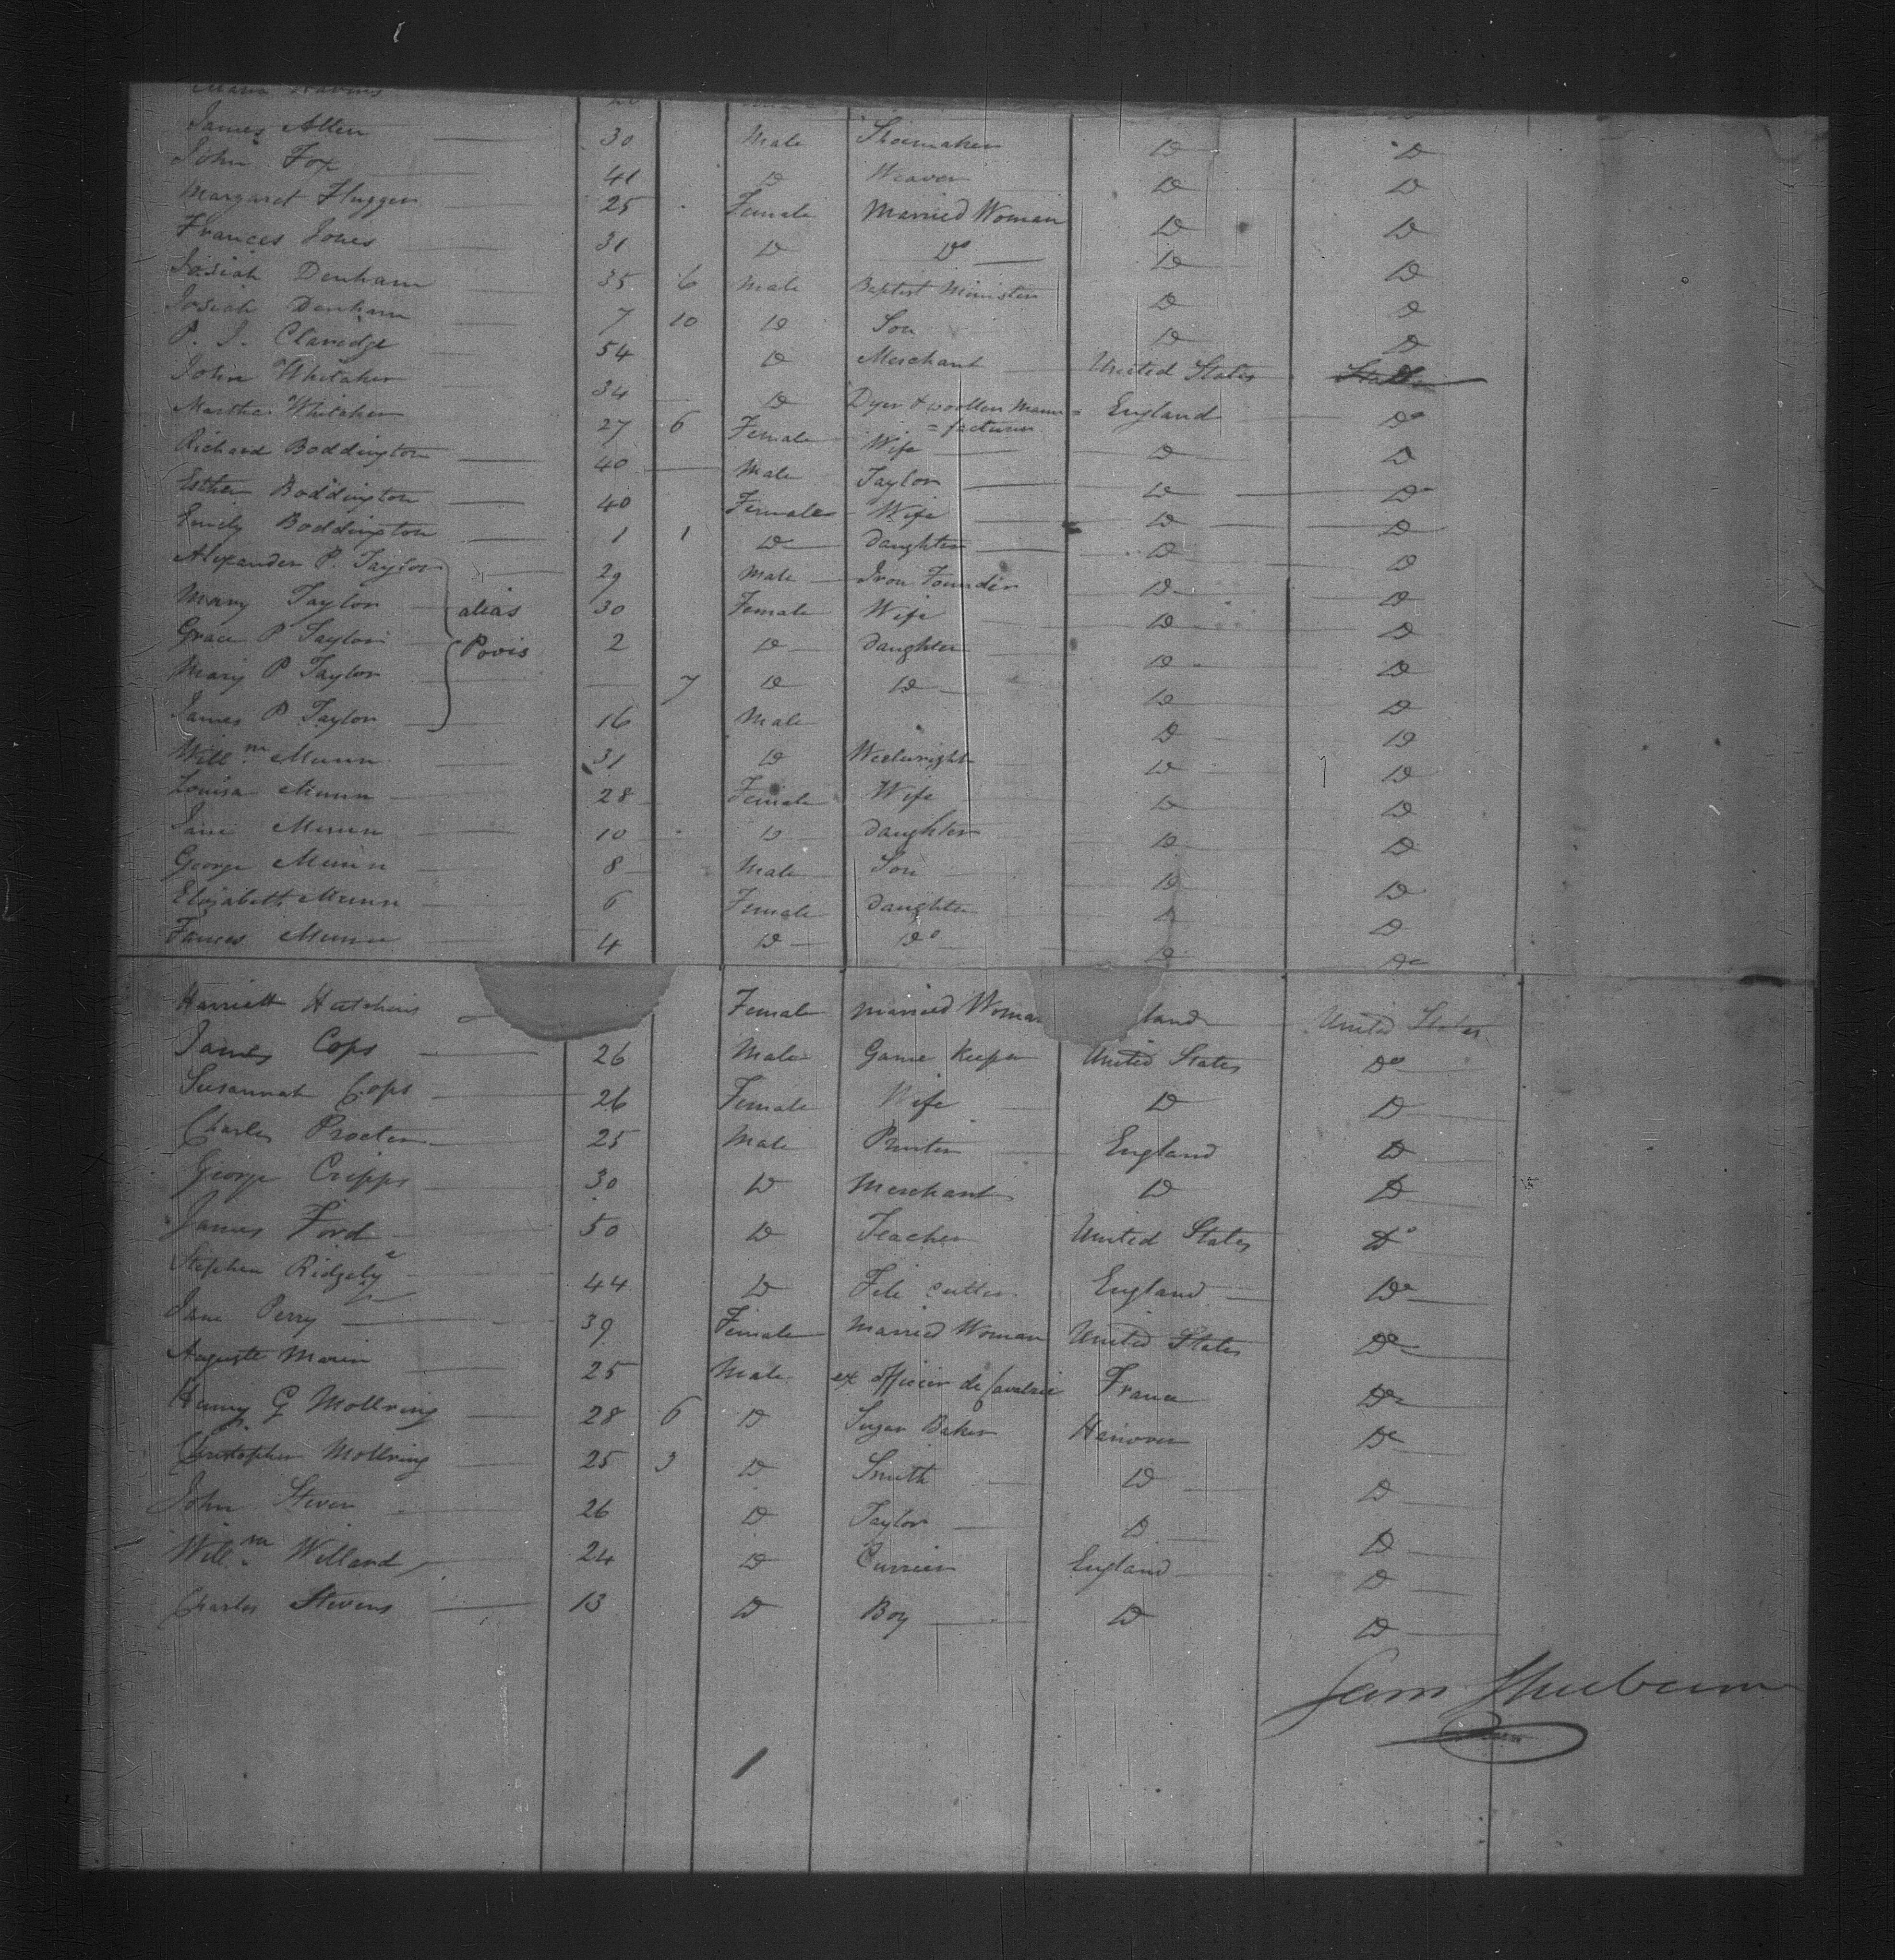 James Allen 30 Male Shoemaker Do Do
John Fox 41 Do Weaver Do Do
Margaret Fluggen 25 Female Married Woman Do Do
Frances Jones 31 Do Do Do Do
Josiah Denham 35 6 Male Baptist Minister Do Do
Josiah Denham 7 10 Do Son Do Do
P. J. Claridge 54 Do Merchant United States
John Whitaker 34 Do Dyer & woollen Manu= England Do
=facturer
Martha Whitaker 27 6 Female Wife Do Do
Richard Boddington 40 Male Taylor Do Do
Esther Boddington 40 Female Wife Do Do
Emily Boddington 1 1 Do Daughter Do Do
Alexander P. Taylor 29 Male Iron Founder Do Do
Mary Taylor alias 30 Female Wife Do Do
Grace P Taylor Povis 2 Do Daughter Do Do
Mary P Taylor 7 Do Do Do Do
James P Taylor 16 Male Do Do
Willm Munn 31 Do Weelwright Do Do
Louisa Munn 28 Female Wife Do Do
Jane Munn 10 Do Daughter Do Do
George Munn 8 Male Son Do Do
Elizabeth Munn 6 Female Daughter Do Do
Munn 4 Do Do Do Do
Harriett Hutchins Female Married Woma land United States
James Cops 26 Male Game Keeper United States Do
Susannah Cops 26 Female Wife Do Do
Charles Procter 25 Male Printer England Do
George Cripps 30 Do Merchant Do Do
James Ford 50 Do Teacher United States Do
Stephen Ridgely 44 Do File Cutter England Do
Jane Perry 39 Female Married Woman United States Do
Auguste Marin 25 Male ex officier de Cavalrie France Do
Henry G Mollring 28 6 Do Sugar Baker Hanover Do
Christopher Mollring 25 3 Do Smith Do Do
John Steven 26 Do Taylor Do Do
Willm Welland 24 Do Currier England Do
Charles Stevens 13 Do Boy Do Do